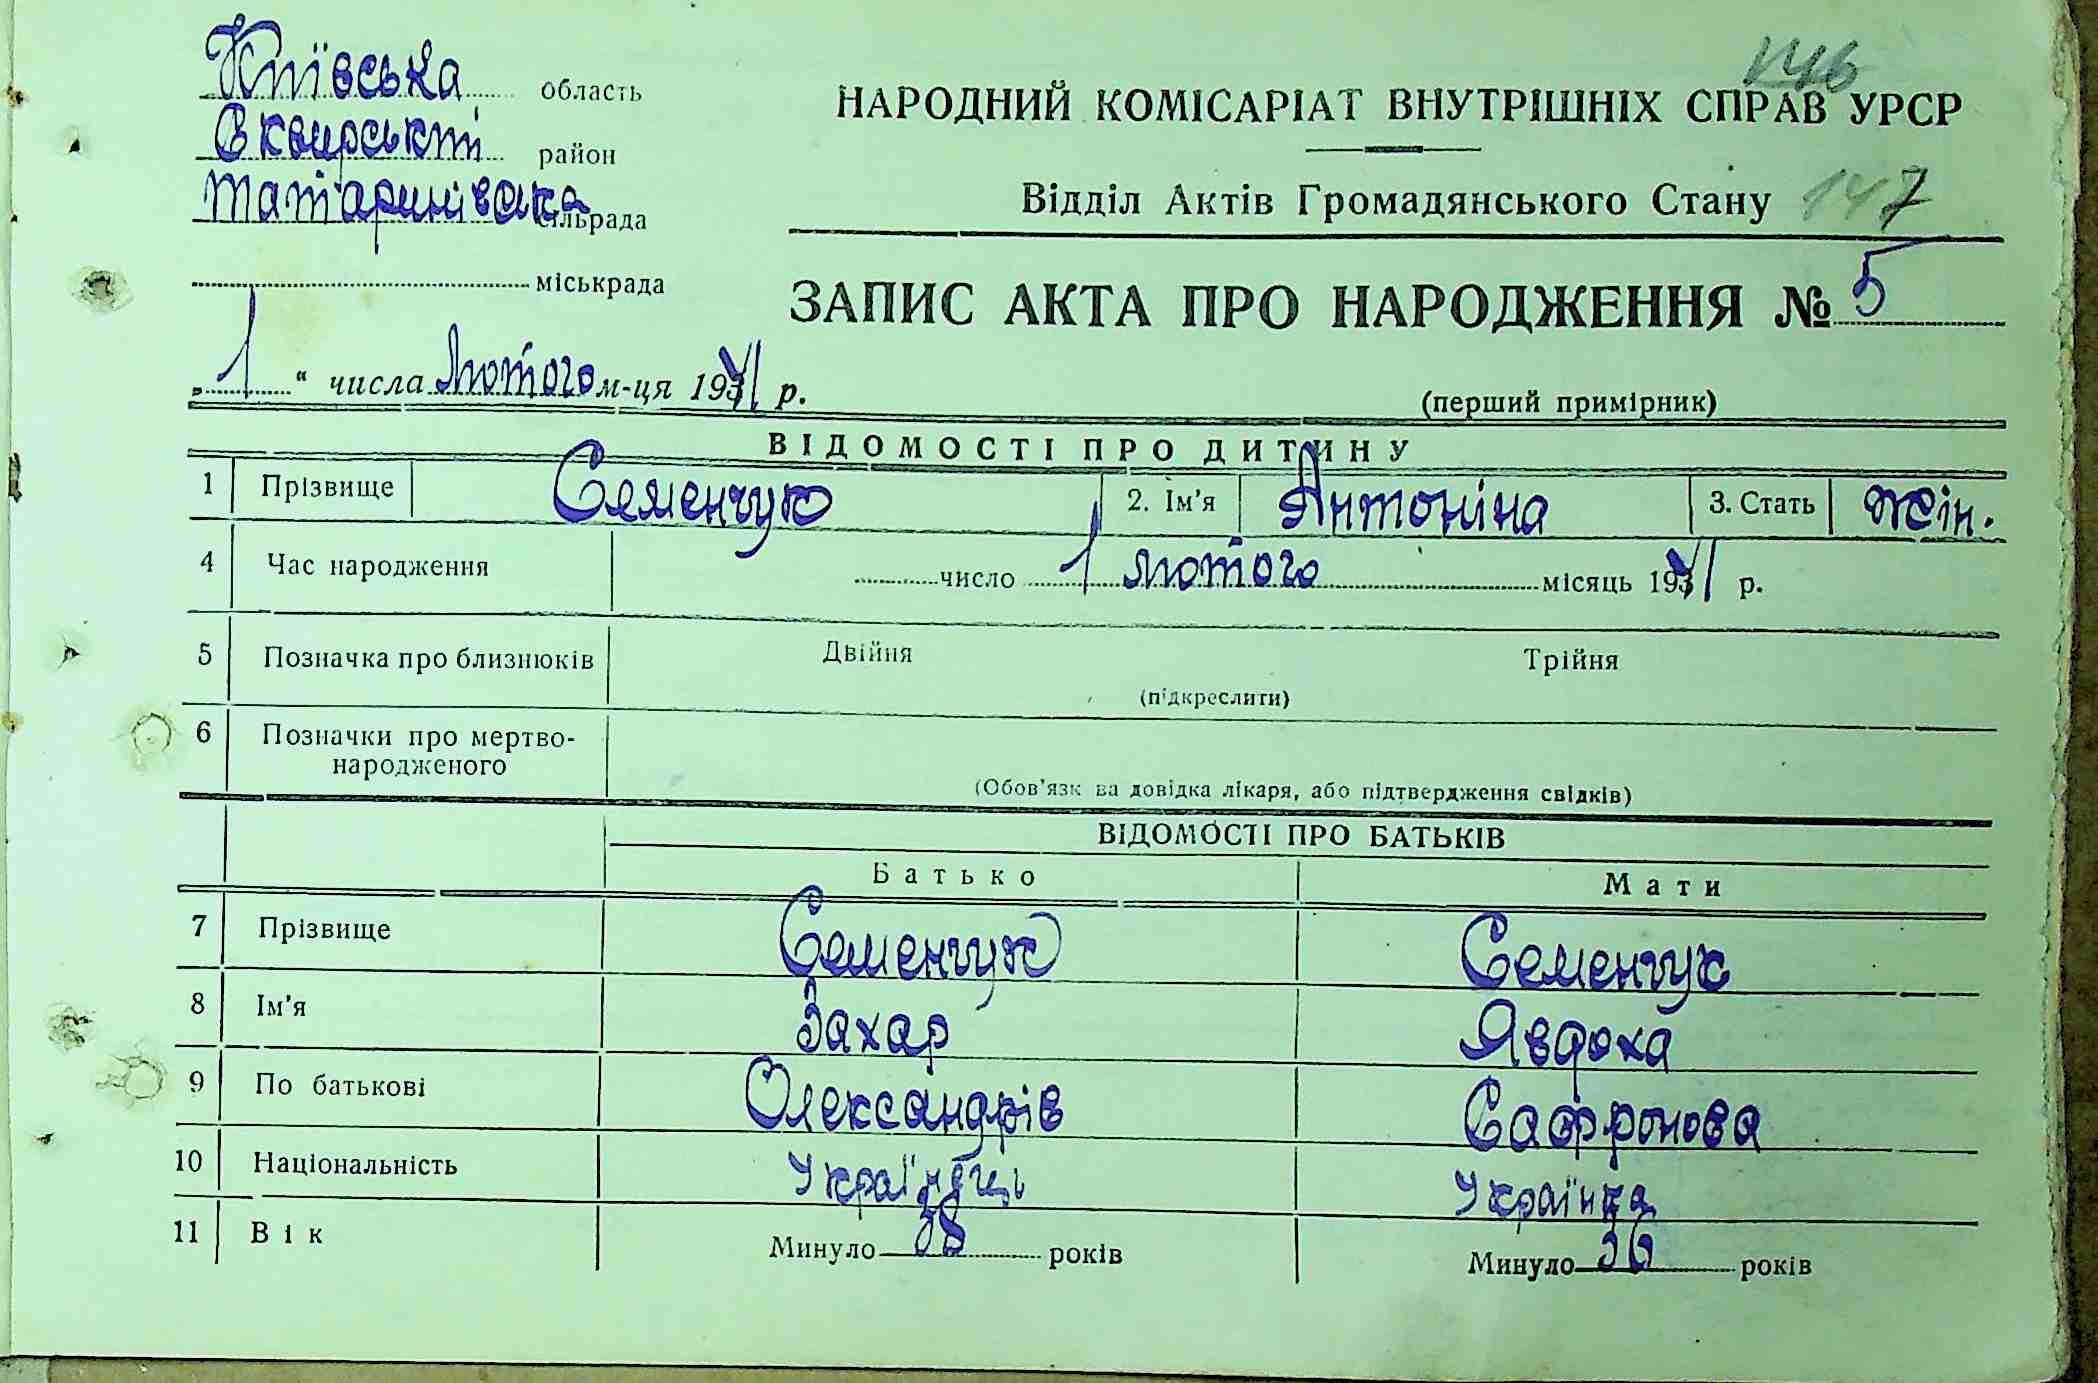 Київська область
Сквирський район
Татаринівська сільрада
міськрада
НАРОДНИЙ КОМІСАРІАТ ВНУТРІШНІХ СПРАВ УРСР
146
Відділ Актів Громадянського Стану
147
ЗАПИС АКТА ПРО НАРОДЖЕННЯ № 5
„1“ числа Лютого м-ця 1941 р.
(перший примірник)
ВІДОМОСТІ ПРО ДИТИНУ
1 Прізвище Семенчук 2. Ім’я Антоніна 3. Стать жін.
4 Час народження число 1 лютого місяць 1941 р.
5 Позначка про близнюків Двійня Трійня
(підкреслити)
6 Позначки про мертво-
народженого
(Обов’язк ва довідка лікаря, або підтвердження свідків)
ВІДОМОСТІ ПРО БАТЬКІВ
Батько Мати
7 Прізвище Семенчук Семенчук
8 Ім’я Захар Явдоха
9 По батькові Олександрів Сафронова
10 Національність Українець Українка
11 Вік Минуло 38 років Минуло 36 років